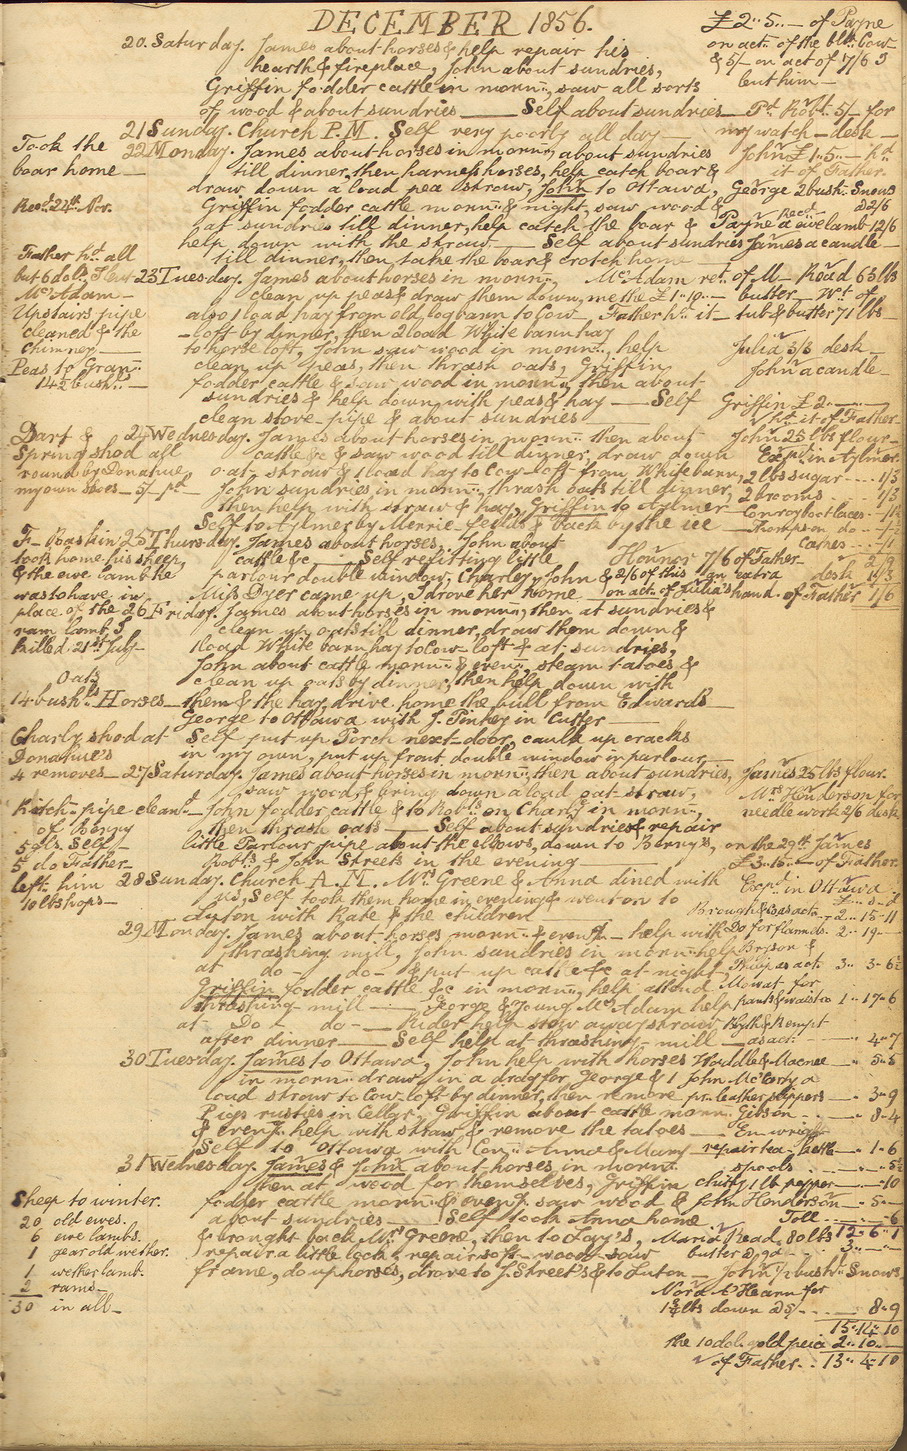 DECEMBER 1856.
£2..5..— of Payne
on act. of the blk. Cow
& 5/- on act of 7/6 I
lent him —
20. Saturday. James about horses & help repair his
hearth & fireplace, John about sundries,
Griffin fodder cattle in morng., saw all sorts
of wood & about sundries — Self about sundries —
Pd. Robt. 5/- for
my watch — desk —
21 Sunday. Church P.M. Self very poorly all day —
22 Monday. James about horses in morng., about sundries
till dinner, then harness horses, help catch boar &
draw down a load pea straw, John to Ottawa,
Griffin fodder cattle morng. & night, saw wood &
at sundries till dinner, help catch the boar &
help down with the straw — Self about sundries
till dinner, then take the boar & crotch home —
Took the
boar home —
Recd. 24th Nov.
John £1..5..— hd.
it of Father.
George 2 bush. Snows
@ 2/6
Payne recd. a ewe lamb 12/6
James a candle —
Father hd. all
but 6 dols. I lent
McAdam —
Upstairs pipe
cleaned & the
chimney —
Peas to Gran.
14½ bush. —
23 Tuesday. James about horses in morng.,
clean up peas & draw them down,
also 1 load hay from old log barn to Cow
-loft by dinner, then 2 load White barn hay
to horse loft, John saw wood in morng., help
clean up peas, then thrash oats, Griffin
fodder cattle & saw wood in morng., then about
sundries & help down with peas & hay — Self
clean stove-pipe & about sundries —
McAdam ret. of M—
me the £1..10..—
Father hd. it —
Read 63 lbs
butter — Wt. of
tub & butter 71 lbs —
Julia 3/3 desk —
John a candle —
Griffin £2..—..—
hd. it of Father —
Dart &
Spring shod all
round by Donahue,
my own shoes — 5/- pd. —
24 Wednesday. James about horses in morng. then about
cattle &c & saw wood till dinner, draw down
oat-straw & 1 load hay to Cow-loft from White barn,
John sundries in morng., thrash oats till dinner,
then help with straw & hay, Griffin to Aylmer —
Self to Aylmer by Merrie fields & back by the ice —
John 25 lbs flour —
Expd. in Aylmer.
2 lbs sugar .... 1/3
2 brooms .... 1/3
Conroy boot-laces — /1½
Thompson do —
Cakes —
F. Raskin
took home his sheep,
& the ewe lamb he
was to have in
place of the
ram lamb I
killed 21st July —
25 Thursday. James about horses, John about
cattle &c — Self refitting little
parlour double window, Charley, John &
Miss Dyer came up, I drove her home —
Honnor 7/6 of Father
2/6 of this on extra
on act. of Julia's hand.
2/9
desk 1/3
of Father 1/6
26 Friday. James about horses in morng., then at sundries &
clean up oats till dinner, draw them down &
1 load White barn hay to Cow-loft & at sundries,
John about cattle morng. & eveng., steam tatoes &
clean up oats by dinner, then help down with
them & the hay, drive home the bull from Edwards —
George to Ottawa with J. Pinkey in Cutter —
Self put up Porch next-door, caulk up cracks
in my own, put up front double window in parlour —
Oats
14 bushls. Horses —
Charly shod at
Donahue's
4 removes —
27 Saturday. James about horses in morng., then about sundries,
saw wood & bring down a load oat-straw,
John fodder cattle & to Robts. on Charly in morng.,
then thrash oats — Self about sundries & repair
little Parlour pipe about the elbows, down to Berry's,
Robts. & John Streets in the evening —
Kitchn. pipe cleand. —
of Berry
5 gls. Self —
5 do Father —
left him
10 lbs hops —
James 25 lbs flour.
Mrs. Henderson for
needle work 2/6 desk
on the 29th James
£3..15..— of Father.
28 Sunday. Church A.M. Mrs. Greene & Anna dined with
us, Self took them home in evening & went on to
Luton with Kate & the children —
29 Monday. James about horses morng. & eveng. — help with
thrashing mill, John sundries in morng. help
at — do — do — & put up cattle &c at night,
Griffin fodder cattle &c in morng., help attend
thrashing mill — George & Young McAdam help
at — Do — do — Rider help stow away straw
after dinner — Self help at thrashing-mill —
Expd. in Ottawa.
£.. s..d
Brough & Co as act. — 2..15..11
Do for flannels. 2..19..—
Bryson &
Philip as act. 3..3..6½
Mowat for
pants & waistco 1..17..6
Blyth & Kempt
as act. — .. 4..7
30 Tuesday. James to Ottawa, John help with horses
in morng. draw in a dray for George & 1
load straw to Cow-loft by dinner, then remove
Pigs rusties in Cellar, Griffin about cattle morng.
& eveng. help with straw & remove the tatoes —
Self to Ottawa with Con, Anna & Mary —
Waddle & Macnee — .. 5..5
John McCarty a
pr. leather slippers — .. 3..9
Gibson — .. 8..4
Enwright
repair tea-kettle — .. 1..6
spools — .. 5½
31 Wednesday. James & John about horses in morng.
then at wood for themselves, Griffin
fodder cattle morng. & eveng. saw wood &
about sundries — Self took Anna home
& brought back Mrs. Greene, then to Lay's,
repair a little lock, repair soft-wood saw
frame, do up horses, drove to J. Street's & to Luton —
Cluff 1 lb pepper — .. 10
John Henderson — .. 5..—
Toll — .. 6
12..6..1
Maria Read, 80 lbs
butter @ 9d — 3..—..—
John ½ bush. Snows
Nora A'Hearn for
1¾ lbs down @ 5/- .... 8..9
15..14..10
the 10 dol. gold peice 2..10..—
of Father.. 13..4..10
Sheep to winter.
20 old ewes.
6 ewe lambs.
1 year old wether.
1 wether lamb.
2 rams —
30 in all —